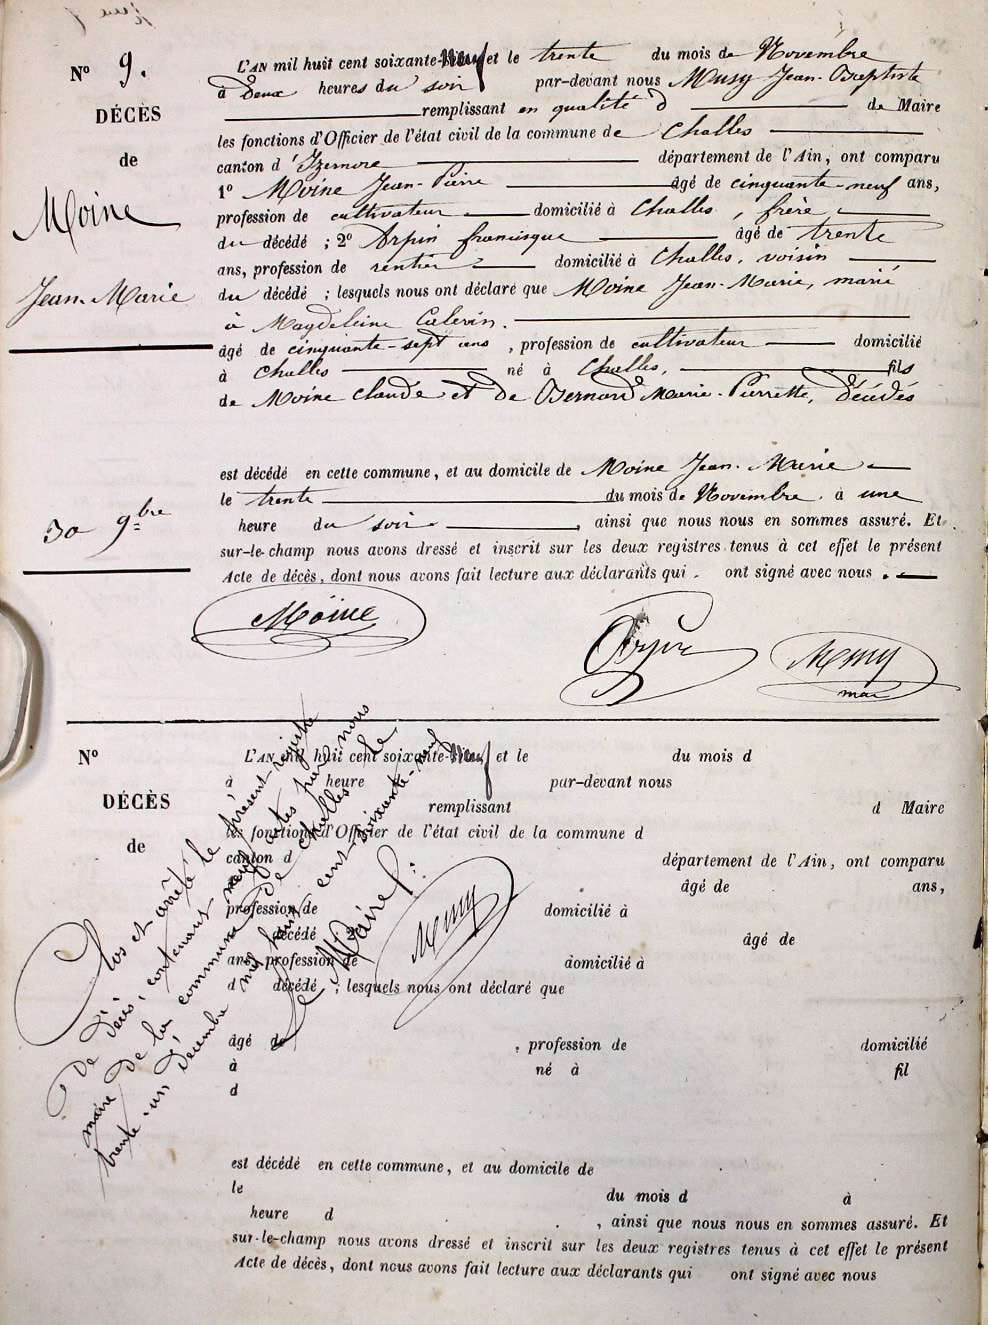 N° 9.
DÉCÈS
de
Moine
Jean-Marie
30 9bre
L'AN mil huit cent soixante-Neuf et le trente du mois de Novembre
à deux heures du soir par-devant nous Musy Jean-Baptiste
remplissant en qualité d de Maire
les fonctions d'Officier de l'état civil de la commune de Challes
canton d'Izernore département de l'Ain, ont comparu
1° Moine Jean-Pierre âgé de cinquante-neuf ans,
profession de cultivateur domicilié à Challes, frère
du décédé ; 2° Arpin francisque âgé de trente
ans, profession de rentier domicilié à Challes, voisin
du décédé ; lesquels nous ont déclaré que Moine Jean-Marie, marié
à Magdeleine Calerin.
âgé de cinquante-sept ans, profession de cultivateur domicilié
à Challes né à Challes, fils
de Moine Claude et de Bernard Marie-Pierrette, décédés
est décédé en cette commune, et au domicile de Moine Jean-Marie
le trente du mois de Novembre à une
heure du soir, ainsi que nous nous en sommes assuré. Et
sur-le-champ nous avons dressé et inscrit sur les deux registres tenus à cet effet le présent
Acte de décès, dont nous avons fait lecture aux déclarants qui ont signé avec nous.
Moine Arpin Musy
mai
N°
DÉCÈS
de
L'AN mil huit cent soixante-Neuf et le du mois d
à heure par-devant nous
remplissant d Maire
les fonctions d'Officier de l'état civil de la commune d
canton d département de l'Ain, ont comparu
âgé de ans,
profession de domicilié à
décédé ; 2° âgé de
ans, profession de domicilié à
d décédé ; lesquels nous ont déclaré que
âgé de , profession de domicilié
à né à fil
d
est décédé en cette commune, et au domicile de
le du mois d à
heure d , ainsi que nous nous en sommes assuré. Et
sur-le-champ nous avons dressé et inscrit sur les deux registres tenus à cet effet le présent
Acte de décès, dont nous avons fait lecture aux déclarants qui ont signé avec nous
Clos et arrêté le présent registre
de décès, contenant neuf actes par nous
maire de la commune de Challes le
trente-un décembre mil huit cent soixante-neuf
Le Maire :
Musy